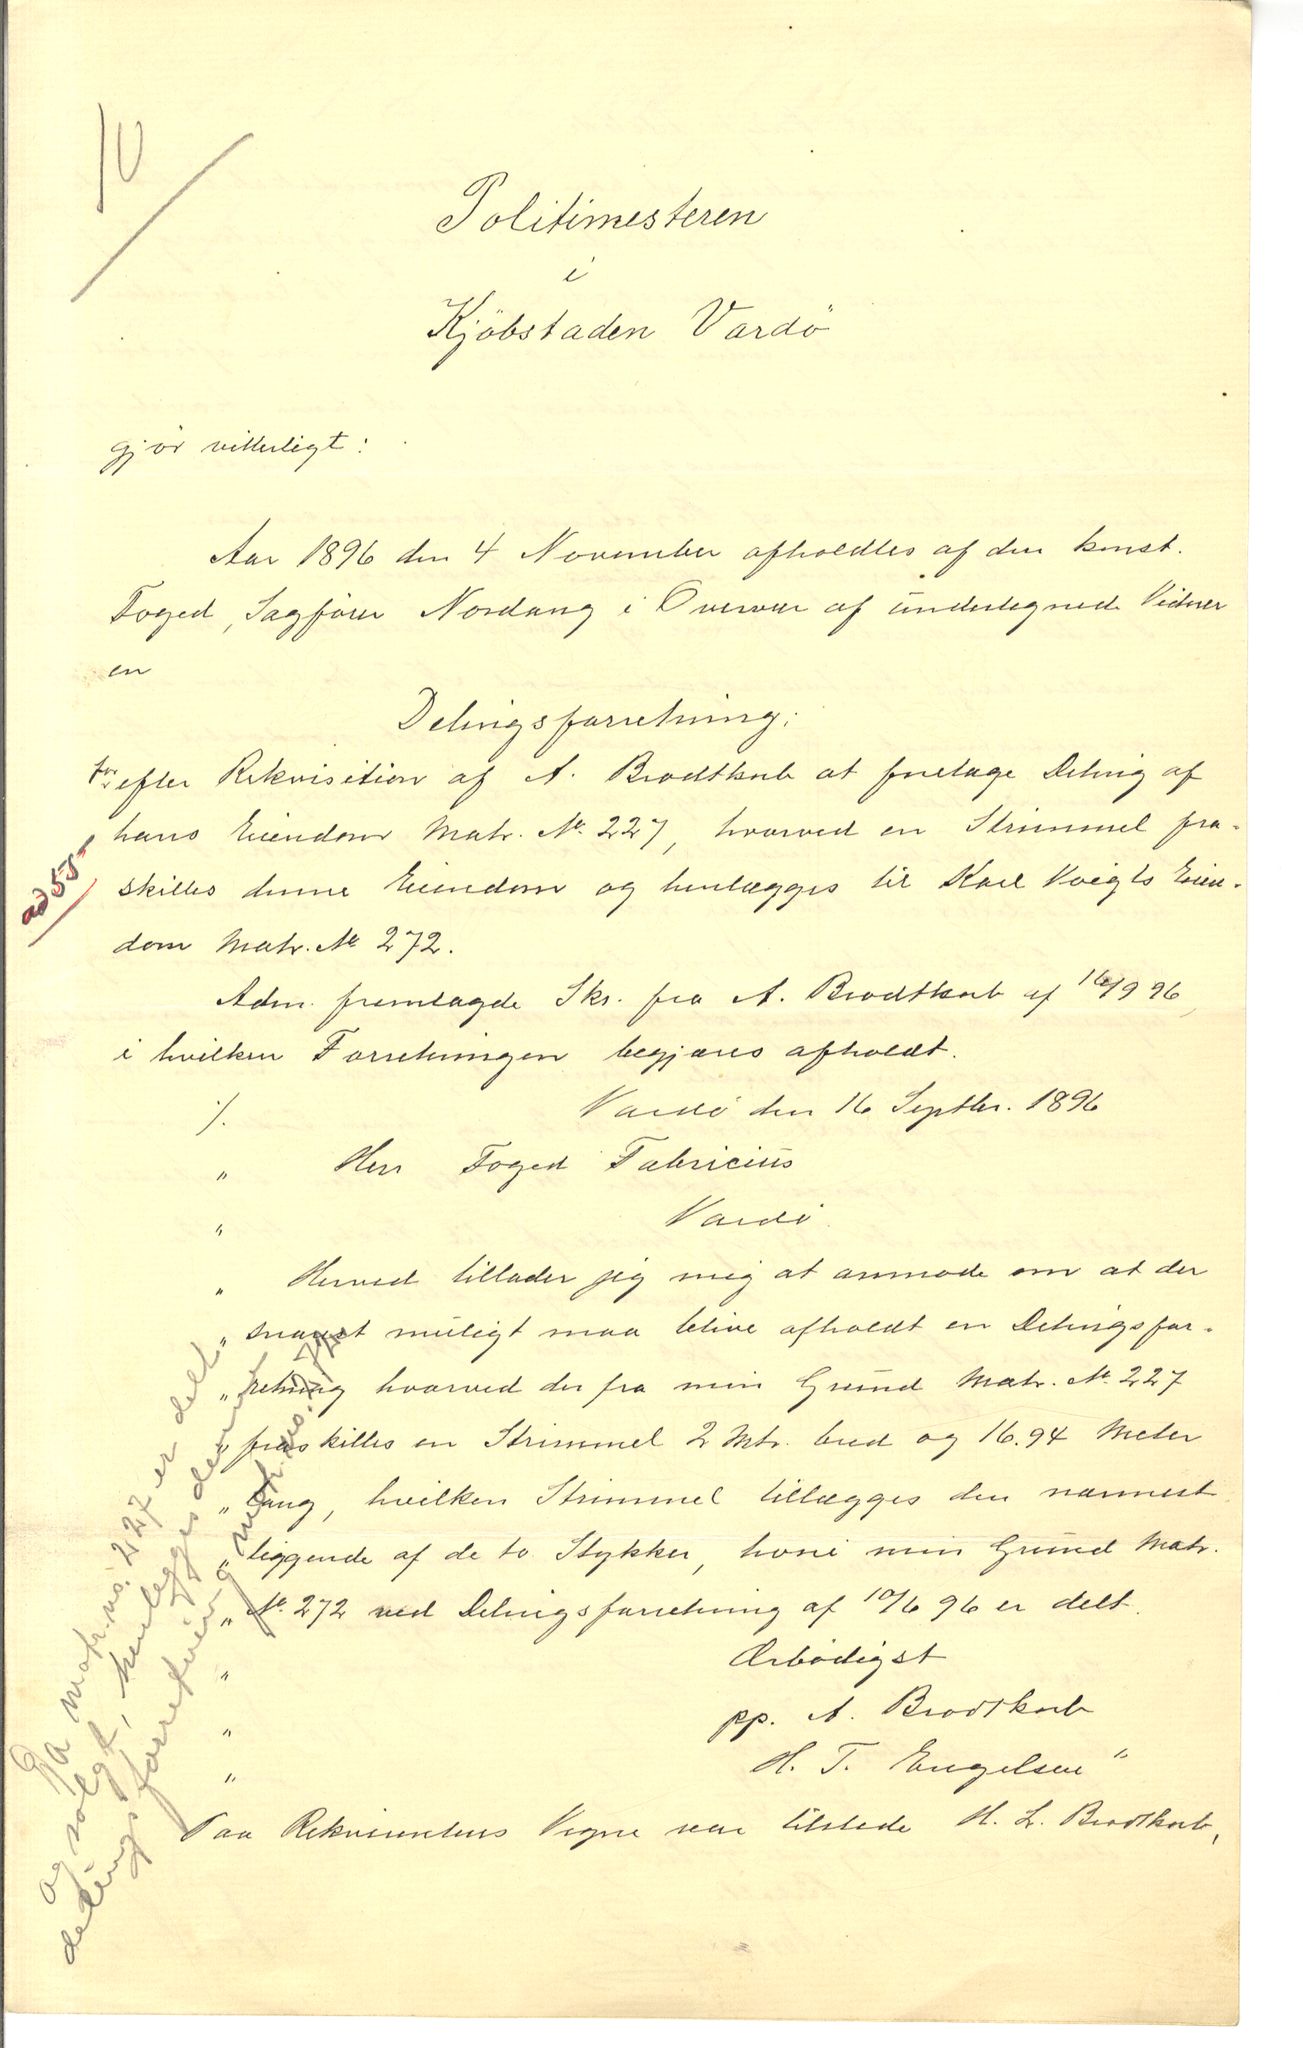 10
Politimesteren
i
Kjöbstaden Vardö
gjör vitterligt:
Aar 1896 den 4 November afholdtes af den konst.
Foged, Sagförer Nordang i Overvær af undertegnede Vidner
en
Delingsforretning:
for efter Rekvisition af A. Brodtkorb at foretage Deling af
hans Eiendom Matr. No 227, hvorved en Strimmel fra-
skilles denne Eiendom og henlægges til Karl Voigts Eien-
dom Matr. No 272.
ad 55-
Adm. fremlagde Skr. fra A. Brodtkorb af 16/9 96,
i hvilken Forretningen begjæres afholdt.
./. Vardö den 16 Septbr. 1896
" Herr Foged Fabricius
" Vardö
" Herved tillader jeg mig at anmode om at der
" snarest muligt maa blive afholdt en Delingsfor-
" retning hvorved der fra min Grund Matr. No 227
" fraskilles en Strimmel 2 Mtr. bred og 16.94 Meter
" lang, hvilken Strimmel tillægges den nærmest
" liggende af de to Stykker, hvori min Grund Matr.
" No 272 ved Delingsforretning af 10/6 96 er delt.
" Ærbödigst
" pp. A. Brodtkorb
" H. T. Engelsen "
Paa Rekvirentens Vegne var tilstede H. L. Brodtkorb,
Da matr. no. 227 er delt
og solgt, henlegges denne
delingsforretning matr. no. 272